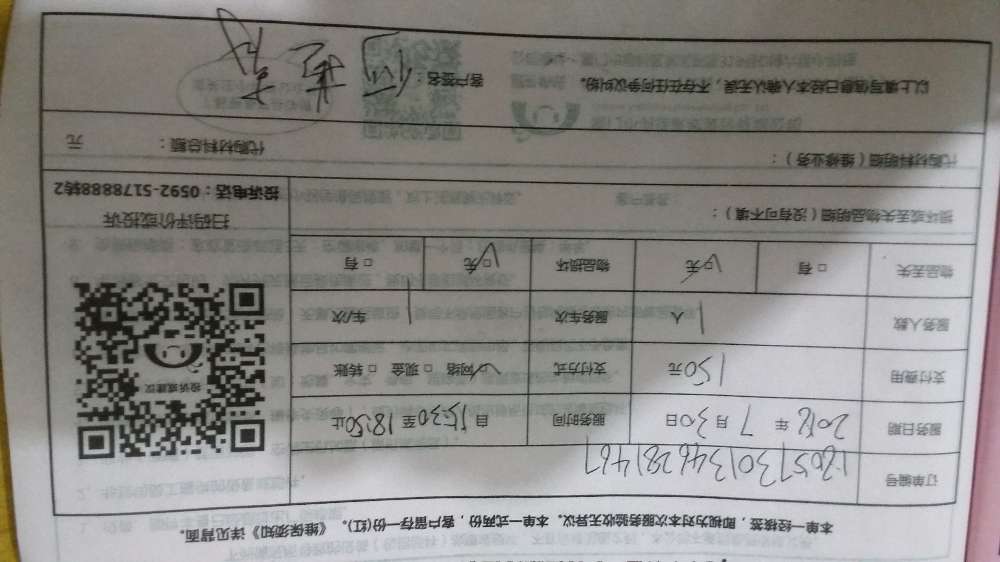 本单一经核签，即视为对本次服务验收无异议。本单一式两份，客户留存一份(红)。《维保须知》详见背面。
订单编号
服务日期 2018年7月30日 服务时间 自15:30至18:50止
支付费用 150元 支付方式 ☑网络 □现金 □转账
服务人数 1人 服务车次 1车/次
物品丢失 □有 ☑无 物品损坏 ☑无 □有
投诉或建议
扫码评价或投诉
投诉电话：0592-5178888转2
损坏或丢失物品明细（没有可不填）：
代购材料明细（维修业务）： 代购材料总额： 元
以上填写信息已经本人确认无误，不存在任何争议纠纷。 客户签名：